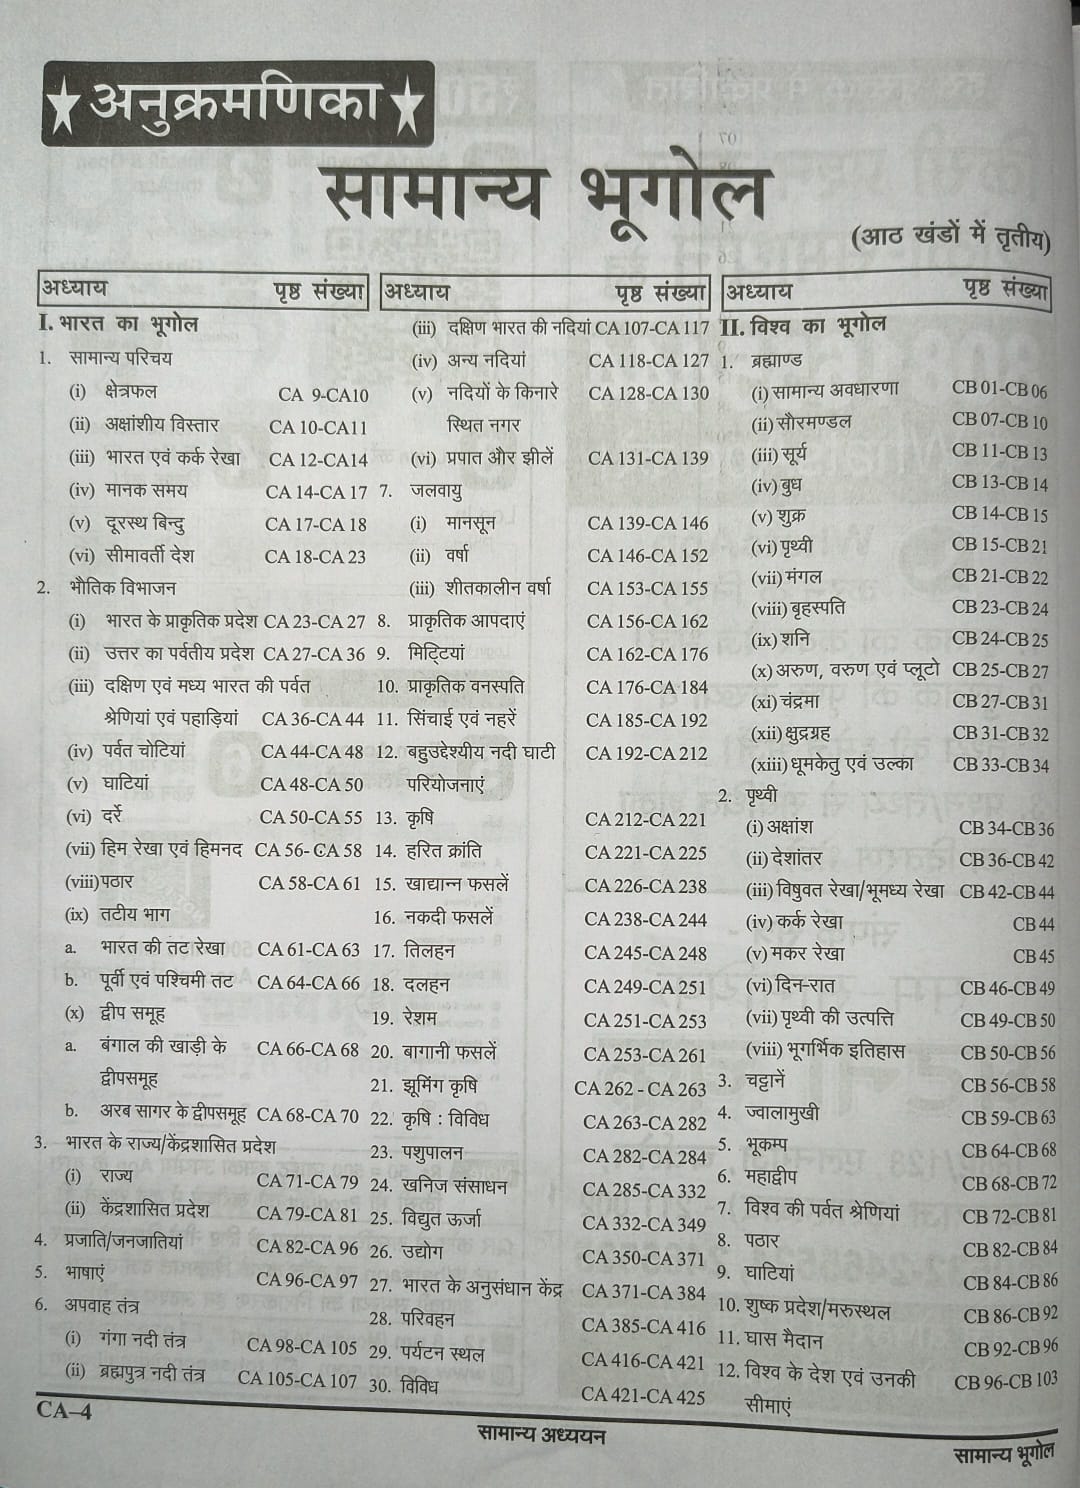 अनुक्रमणिका
सामान्य भूगोल
(आठ खंडों में तृतीय)
अध्याय पृष्ठ संख्या
I. भारत का भूगोल
1. सामान्य परिचय
(i) क्षेत्रफल CA 9-CA10
(ii) अक्षांशीय विस्तार CA 10-CA11
(iii) भारत एवं कर्क रेखा CA 12-CA14
(iv) मानक समय CA 14-CA 17
(v) दूरस्थ बिन्दु CA 17-CA 18
(vi) सीमावर्ती देश CA 18-CA 23
2. भौतिक विभाजन
(i) भारत के प्राकृतिक प्रदेश CA 23-CA 27
(ii) उत्तर का पर्वतीय प्रदेश CA 27-CA 36
(iii) दक्षिण एवं मध्य भारत की पर्वत
श्रेणियां एवं पहाड़ियां CA 36-CA 44
(iv) पर्वत चोटियां CA 44-CA 48
(v) घाटियां CA 48-CA 50
(vi) दर्रे CA 50-CA 55
(vii) हिम रेखा एवं हिमनद CA 56- CA 58
(viii) पठार CA 58-CA 61
(ix) तटीय भाग
a. भारत की तट रेखा CA 61-CA 63
b. पूर्वी एवं पश्चिमी तट CA 64-CA 66
(x) द्वीप समूह
a. बंगाल की खाड़ी के CA 66-CA 68
द्वीपसमूह
b. अरब सागर के द्वीपसमूह CA 68-CA 70
3. भारत के राज्य/केंद्रशासित प्रदेश
(i) राज्य CA 71-CA 79
(ii) केंद्रशासित प्रदेश CA 79-CA 81
4. प्रजाति/जनजातियां CA 82-CA 96
5. भाषाएं CA 96-CA 97
6. अपवाह तंत्र
(i) गंगा नदी तंत्र CA 98-CA 105
(ii) ब्रह्मपुत्र नदी तंत्र CA 105-CA 107
अध्याय पृष्ठ संख्या
(iii) दक्षिण भारत की नदियां CA 107-CA 117
(iv) अन्य नदियां CA 118-CA 127
(v) नदियों के किनारे CA 128-CA 130
स्थित नगर
(vi) प्रपात और झीलें CA 131-CA 139
7. जलवायु
(i) मानसून CA 139-CA 146
(ii) वर्षा CA 146-CA 152
(iii) शीतकालीन वर्षा CA 153-CA 155
8. प्राकृतिक आपदाएं CA 156-CA 162
9. मिट्टियां CA 162-CA 176
10. प्राकृतिक वनस्पति CA 176-CA 184
11. सिंचाई एवं नहरें CA 185-CA 192
12. बहुउद्देश्यीय नदी घाटी CA 192-CA 212
परियोजनाएं
13. कृषि CA 212-CA 221
14. हरित क्रांति CA 221-CA 225
15. खाद्यान्न फसलें CA 226-CA 238
16. नकदी फसलें CA 238-CA 244
17. तिलहन CA 245-CA 248
18. दलहन CA 249-CA 251
19. रेशम CA 251-CA 253
20. बागानी फसलें CA 253-CA 261
21. झूमिंग कृषि CA 262 - CA 263
22. कृषि : विविध CA 263-CA 282
23. पशुपालन CA 282-CA 284
24. खनिज संसाधन CA 285-CA 332
25. विद्युत ऊर्जा CA 332-CA 349
26. उद्योग CA 350-CA 371
27. भारत के अनुसंधान केंद्र CA 371-CA 384
28. परिवहन CA 385-CA 416
29. पर्यटन स्थल CA 416-CA 421
30. विविध CA 421-CA 425
अध्याय पृष्ठ संख्या
II. विश्व का भूगोल
1. ब्रह्माण्ड
(i) सामान्य अवधारणा CB 01-CB 06
(ii) सौरमण्डल CB 07-CB 10
(iii) सूर्य CB 11-CB 13
(iv) बुध CB 13-CB 14
(v) शुक्र CB 14-CB 15
(vi) पृथ्वी CB 15-CB 21
(vii) मंगल CB 21-CB 22
(viii) बृहस्पति CB 23-CB 24
(ix) शनि CB 24-CB 25
(x) अरुण, वरुण एवं प्लूटो CB 25-CB 27
(xi) चंद्रमा CB 27-CB 31
(xii) क्षुद्रग्रह CB 31-CB 32
(xiii) धूमकेतु एवं उल्का CB 33-CB 34
2. पृथ्वी
(i) अक्षांश CB 34-CB 36
(ii) देशांतर CB 36-CB 42
(iii) विषुवत रेखा/भूमध्य रेखा CB 42-CB 44
(iv) कर्क रेखा CB 44
(v) मकर रेखा CB 45
(vi) दिन-रात CB 46-CB 49
(vii) पृथ्वी की उत्पत्ति CB 49-CB 50
(viii) भूगर्भिक इतिहास CB 50-CB 56
3. चट्टानें CB 56-CB 58
4. ज्वालामुखी CB 59-CB 63
5. भूकम्प CB 64-CB 68
6. महाद्वीप CB 68-CB 72
7. विश्व की पर्वत श्रेणियां CB 72-CB 81
8. पठार CB 82-CB 84
9. घाटियां CB 84-CB 86
10. शुष्क प्रदेश/मरुस्थल CB 86-CB 92
11. घास मैदान CB 92-CB 96
12. विश्व के देश एवं उनकी CB 96-CB 103
सीमाएं
CA–4
सामान्य अध्ययन
सामान्य भूगोल